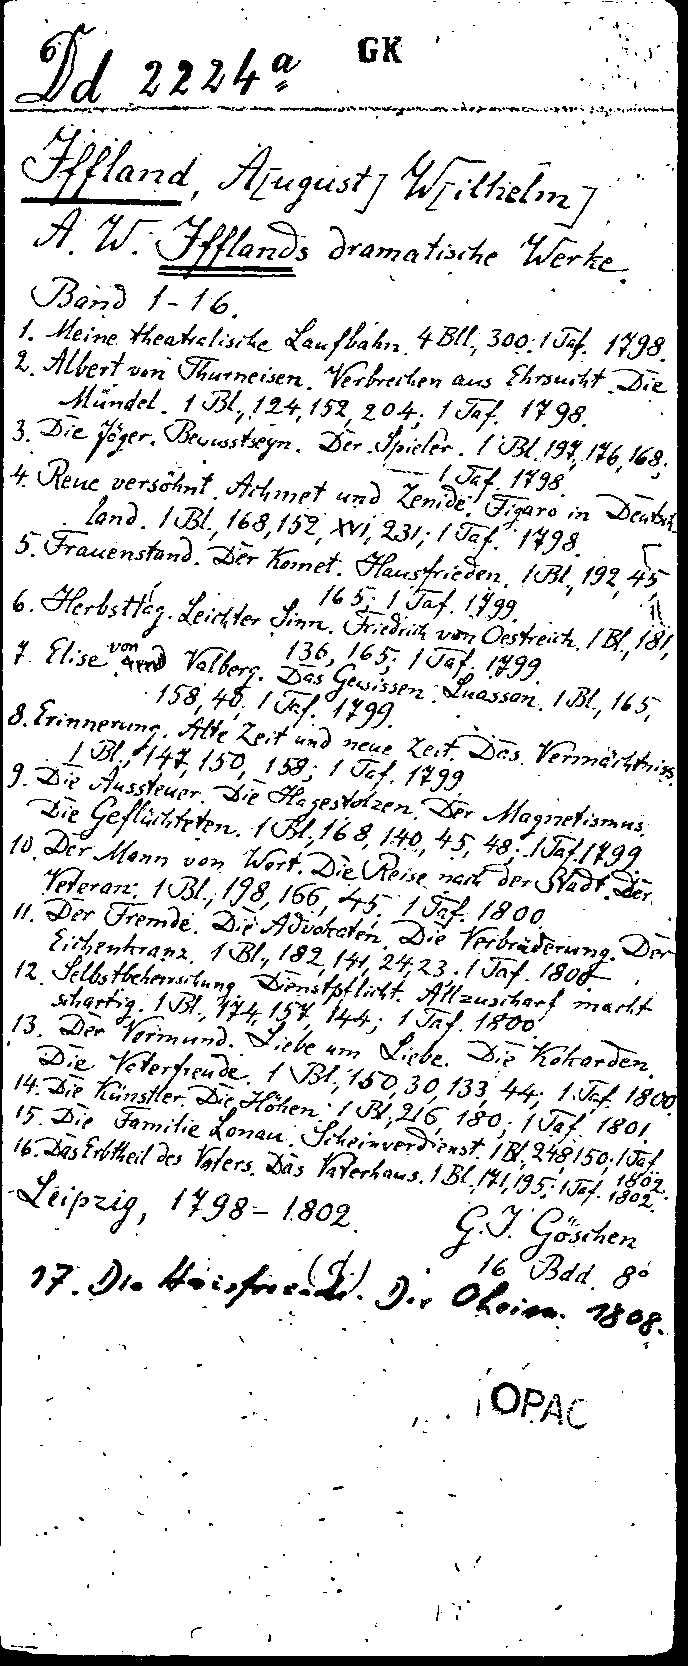 Dd 2224ª GK
Iffland, A[ugust] W[ilhelm]
A. W. Ifflands dramatische Werke.
Band 1-16.
1. Meine theatralische Laufbahn. 4 Bll., 300; 1 Taf. 1798.
2. Albert von Thurneisen. Verbrechen aus Ehrsucht. Die
Mündel. 1 Bl., 124, 152, 204; 1 Taf. 1798.
3. Die Jäger. Bewusstseyn. Der Spieler. 1 Bl. 197, 176, 168;
1 Taf. 1798.
4. Reue versöhnt. Achmet und Zenide. Figaro in Deutsch-
land. 1 Bl., 168, 152, XVI, 231; 1 Taf. 1798.
5. Frauenstand. Der Komet. Hausfrieden. 1 Bl., 192, 45,
165; 1 Taf. 1799.
6. Herbsttag. Leichter Sinn. Friedrich von Oestreich. 1 Bl., 181,
136, 165; 1 Taf. 1799.
7. Elise von Valberg. Das Gewissen. Luassan. 1 Bl., 165,
158, 40, 1 Taf. 1799.
8. Erinnerung. Alte Zeit und neue Zeit. Das Vermächtniss.
1 Bl., 147, 150, 158; 1 Taf. 1799
9. Die Aussteuer. Die Hagestolzen. Der Magnetismus.
Die Geflüchteten. 1 Bl., 168, 140, 45, 48; 1 Taf. 1799
10. Der Mann von Wort. Die Reise nach der Stadt. Der
Veteran. 1 Bl., 198, 166, 45; 1 Taf. 1800
11. Der Fremde. Die Advokaten. Die Verbrüderung. Der
Eichenkranz. 1 Bl., 182, 141, 24, 23. 1 Taf. 1800
12. Selbstbeherrschung. Dienstpflicht. Allzuscharf macht
schartig. 1 Bl., 174, 157, 144; 1 Taf. 1800.
13. Der Vormund. Liebe um Liebe. Die Kokarden.
Die Vaterfreude. 1 Bl., 150, 30, 133, 44; 1 Taf. 1800
14. Die Künstler. Die Höhen. 1 Bl., 216, 180; 1 Taf. 1801
15. Die Familie Lonau. Scheinverdienst. 1 Bl., 248, 150; 1 Taf.
1802.
16. Das Erbtheil des Vaters. Das Vaterhaus. 1 Bl., 171, 195; 1 Taf. 1802.
Leipzig, 1798-1802. G. J. Göschen
16 Bdd. 8°
17. Die Hausfreunde. Der Oheim. 1808.
OPAC